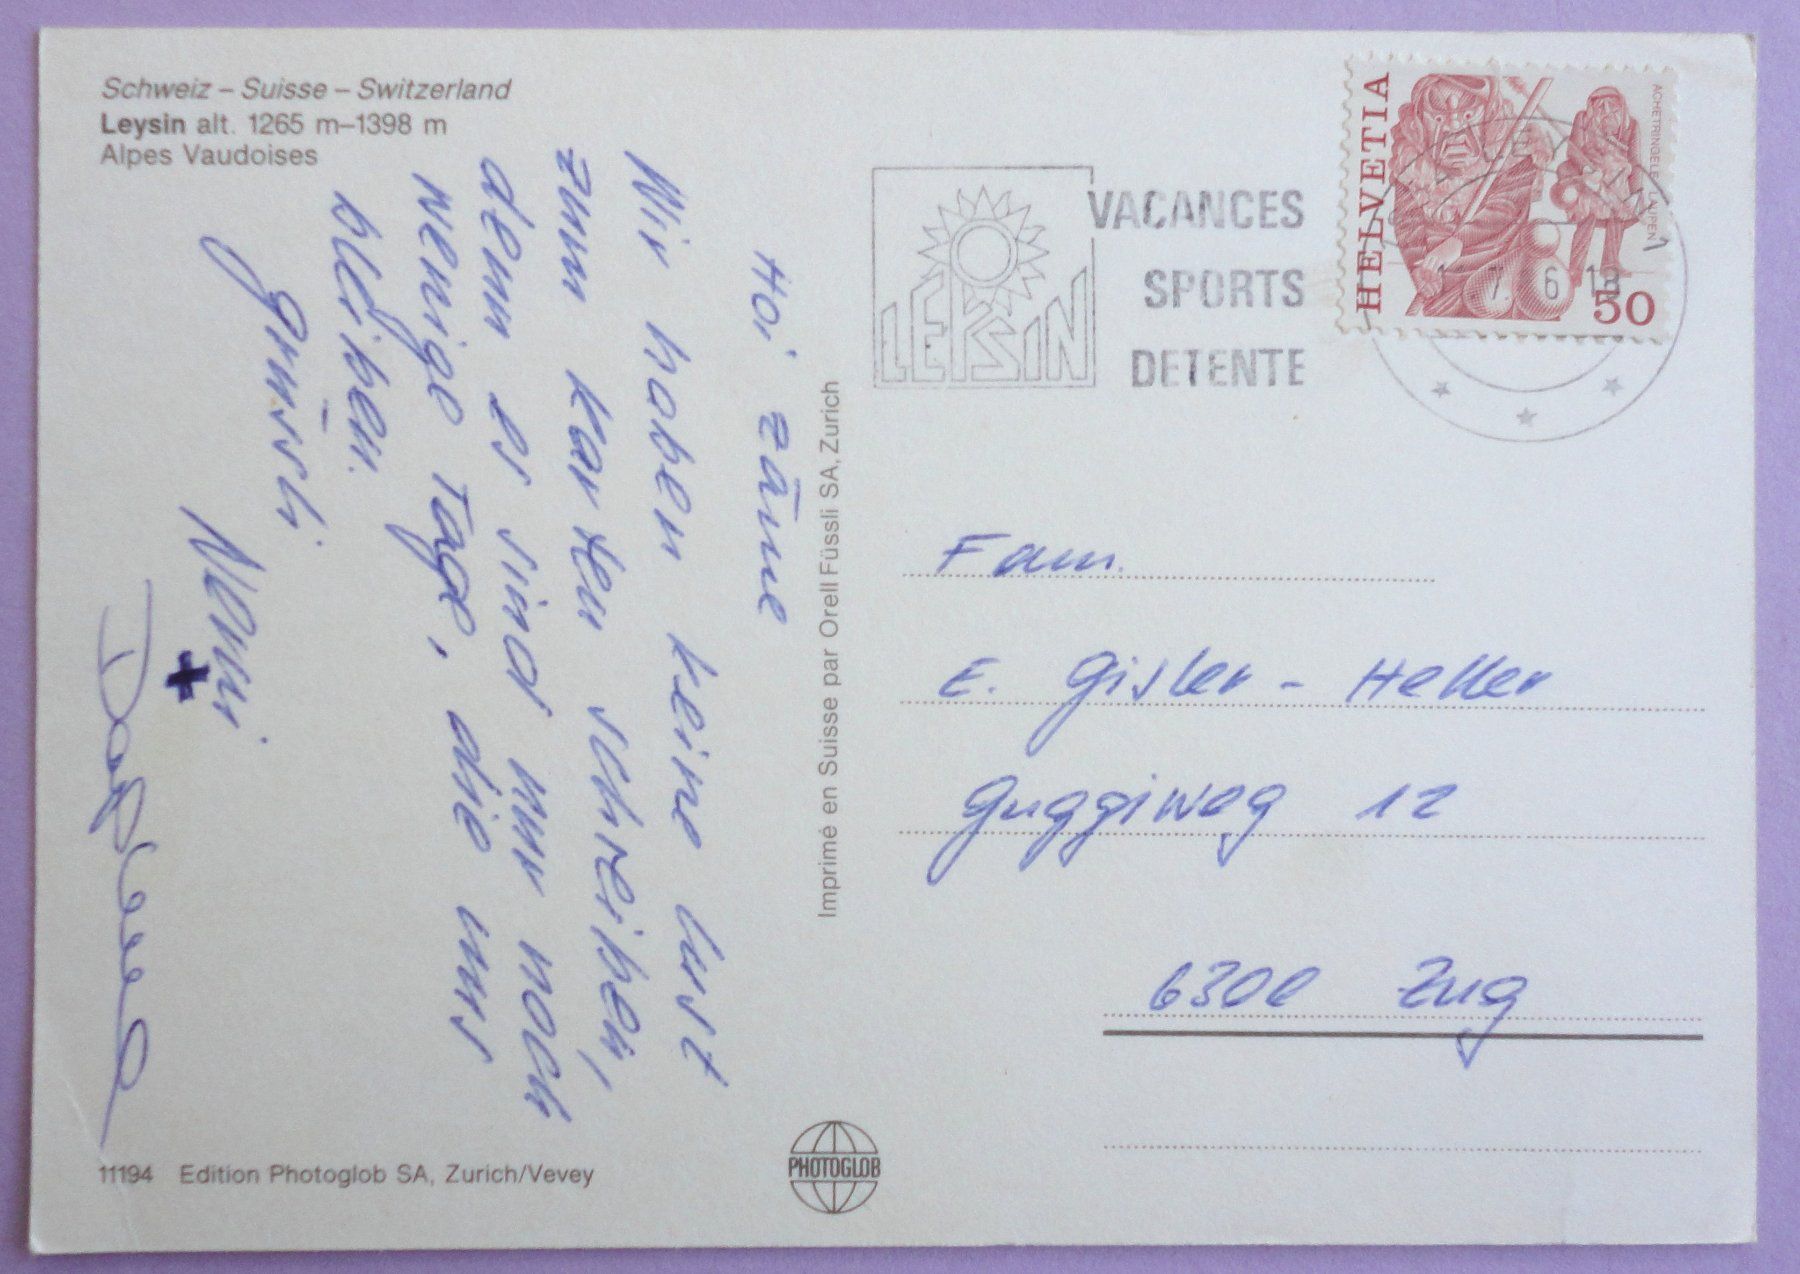 Schweiz – Suisse – Switzerland
Leysin alt. 1265 m–1398 m
Alpes Vaudoises
Hoi zäme
Wir haben keine Lust
zum Karten schreiben,
denn es sind nur noch
wenige Tage, die uns
bleiben.
Grüssli
+
11194 Edition Photoglob SA, Zurich/Vevey
Imprimé en Suisse par Orell Füssli SA, Zurich
PHOTOGLOB
LEYSIN
VACANCES
SPORTS
DETENTE
HELVETIA
ACHETRINGELER LAUPEN
50
Fam.
E. Gisler-Heller
Guggiweg 12
6300 Zug